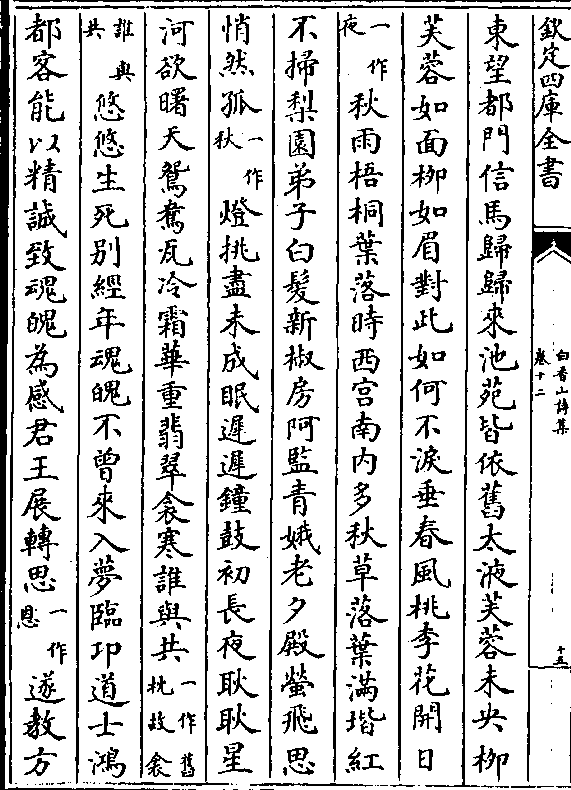 欽定四庫全書
白香山詩集
卷十二
十五
東望都門信馬歸歸來池苑皆依舊太液芙蓉未央柳
芙蓉如面柳如眉對此如何不淚垂春風桃李花開日
一作夜秋雨梧桐葉落時西宮南內多秋草落葉滿堦紅
不掃梨園弟子白髮新椒房阿監青娥老夕殿螢飛思
悄然孤一作秋燈挑盡未成眠遲遲鐘鼓初長夜耿耿星
河欲曙天鴛鴦瓦冷霜華重翡翠衾寒誰與共一作舊枕故衾
誰與共悠悠生死別經年魂魄不曾來入夢臨卭道士鴻
都客能以精誠致魂魄為感君王展轉思一作恩遂教方